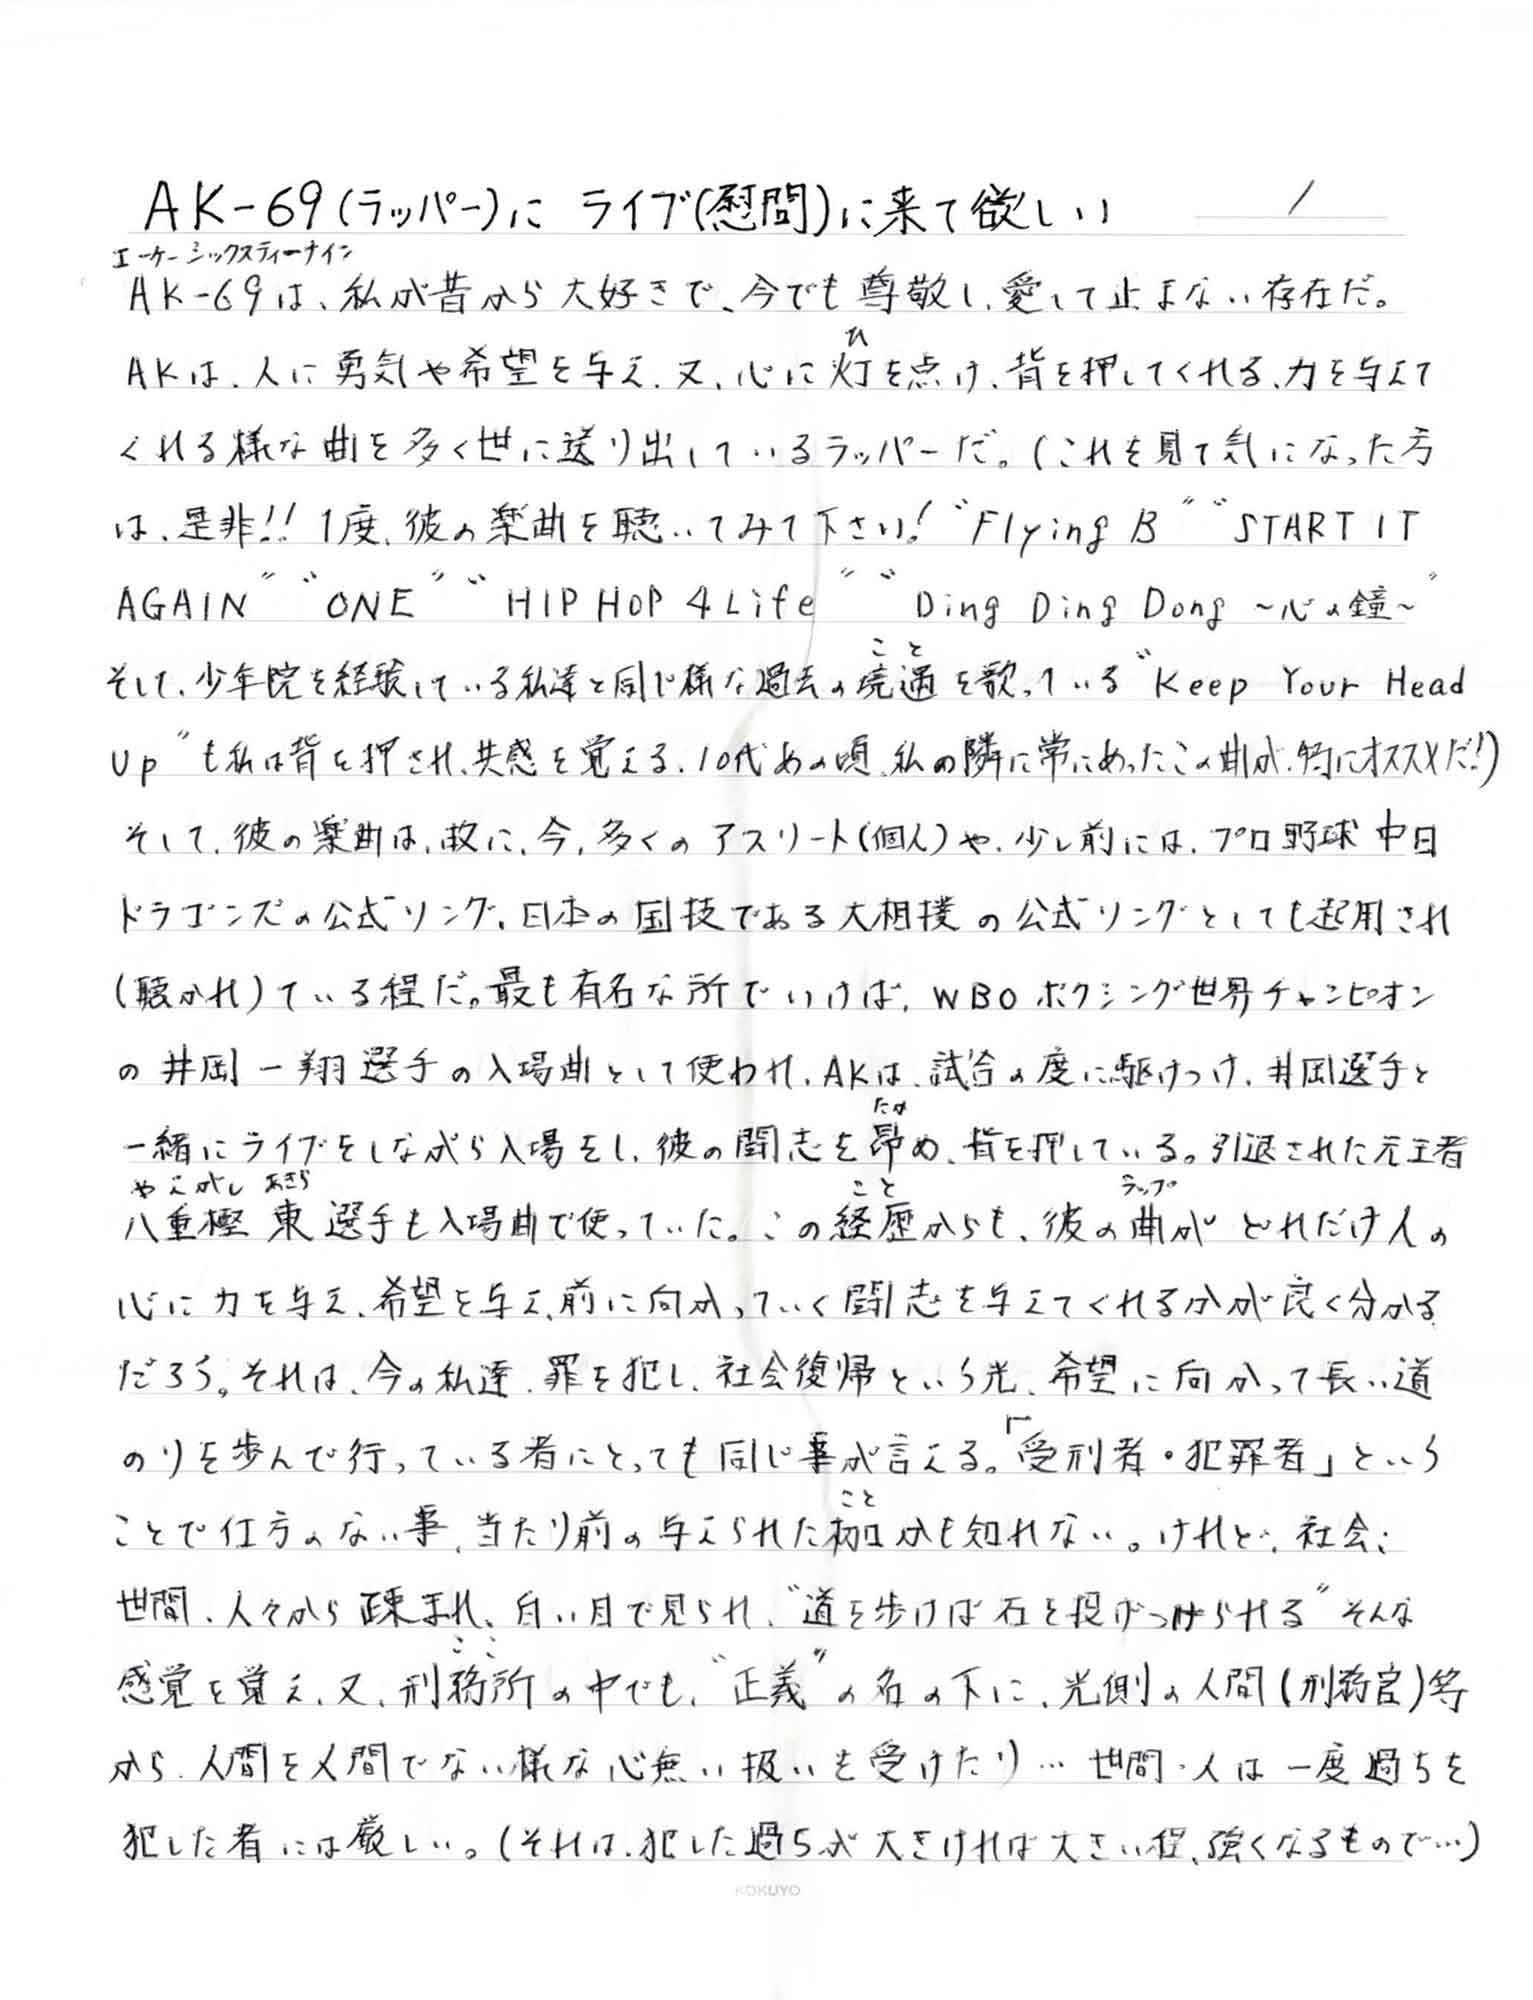 AK-69(ラッパー)に ライブ(慰問)に来て欲しい 1
エーケーシックスティーナイン
AK-69は、私が昔から大好きで、今でも尊敬し、愛して止まない存在だ。
ひ
AKは、人に勇気や希望を与え、又、心に灯を点け、背を押してくれる、力を与えて
くれる様な曲を多く世に送り出しているラッパーだ。(これを見て気になった方
は、是非!! 1度、彼の楽曲を聴いてみて下さい! “Flying B” “START IT
AGAIN” “ONE” “HIP HOP 4 Life” “Ding Ding Dong ~心の鐘~”
こと
そして、少年院を経験している私達と同じ様な過去の境遇を歌っている“Keep Your Head
Up”も私は背を押され、共感を覚える、10代あの頃、私の隣に常にあったこの曲が、特にオススメだ!)
そして、彼の楽曲は、故に、今、多くのアスリート(個人)や、少し前には、プロ野球 中日
ドラゴンズの公式ソング、日本の国技である大相撲の公式ソングとしても起用され
(聴かれ)ている程だ。最も有名な所でいけば、WBOボクシング世界チャンピオン
の井岡一翔選手の入場曲として使われ、AKは、試合の度に駆けつけ、井岡選手と
たか
一緒にライブをしながら入場をし、彼の闘志を昂め、背を押している。引退された元王者
やえがし あきら こと ラップ
八重樫 東 選手も入場曲で使っていた。この経歴からも、彼の曲がどれだけ人の
心に力を与え、希望を与え、前に向かっていく闘志を与えてくれるかが良く分かる
だろう。それは、今の私達、罪を犯し、社会復帰という光、希望に向かって長い道
のりを歩んで行っている者にとっても同じ事が言える。「受刑者・犯罪者」という
こと
ことで仕方のない事、当たり前の与えられた枷かも知れない。けれど、社会、
世間、人々から疎まれ、白い目で見られ、“道を歩けば石を投げつけられる”そんな
ここ
感覚を覚え、又、刑務所の中でも、“正義”の名の下に、光側の人間(刑務官)等
から、人間を人間でない様な心無い扱いを受けたり… 世間・人は一度過ちを
犯した者には厳しい。(それは、犯した過ちが大きければ大きい程、強くなるもので…)
KOKUYO